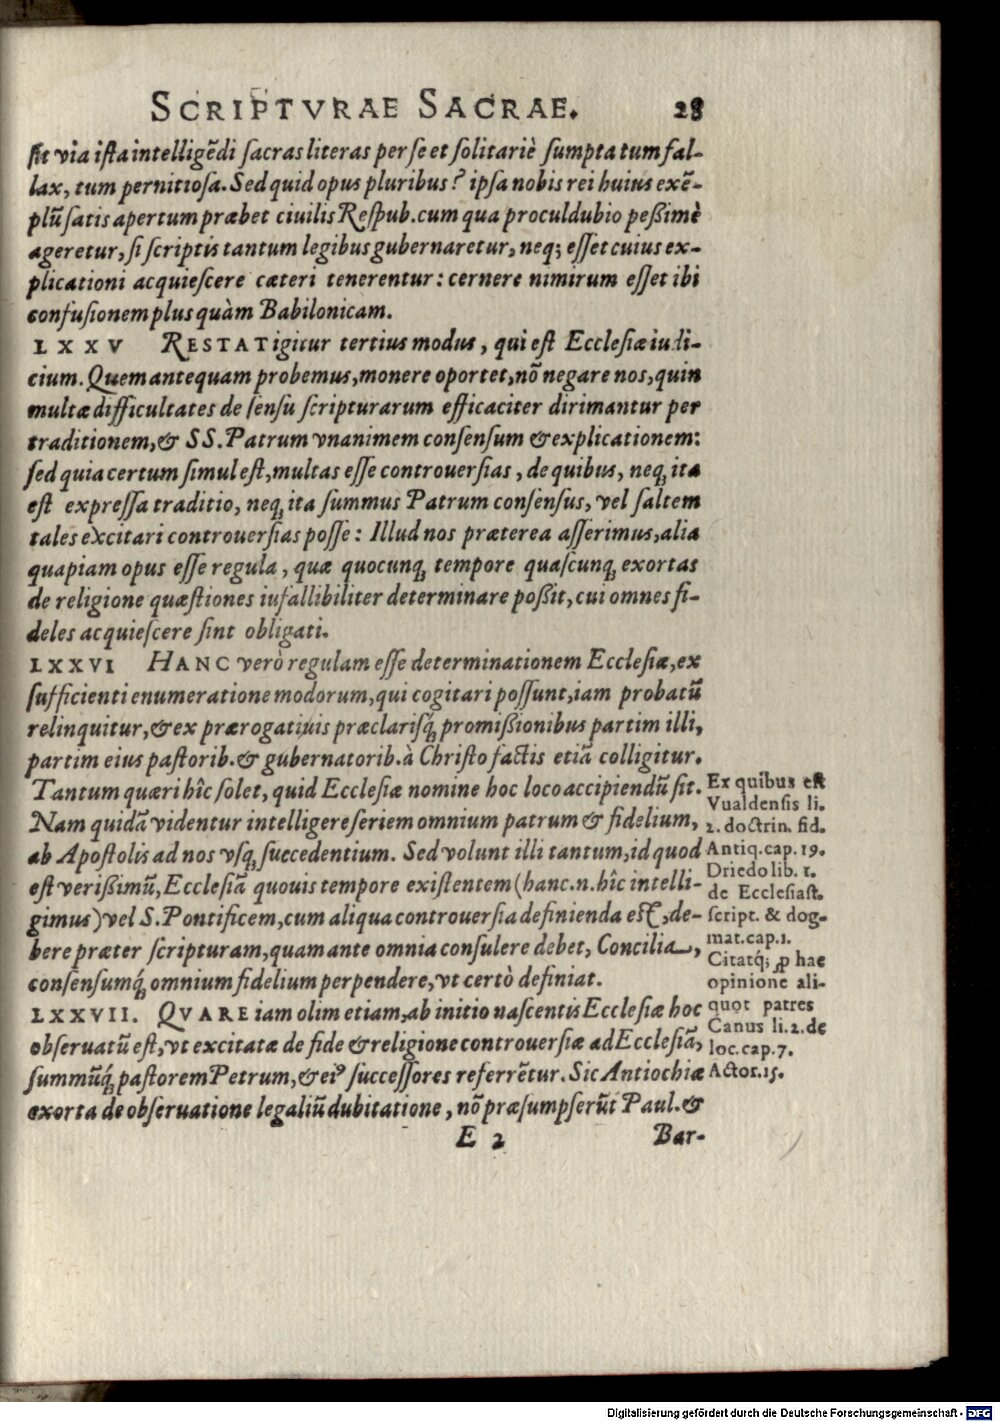 SCRIPTVRAE SACRAE. 28
sit via ista intelligēdi sacras literas per se et solitariè sumpta tum fal-
lax, tum pernitiosa. Sed quid opus pluribus? ipsa nobis rei huius exē-
plū satis apertum præbet ciuilis Respub. cum qua proculdubio peßimè
ageretur, si scriptis tantum legibus gubernaretur, neq; esset cuius ex-
plicationi acquiescere cæteri tenerentur: cernere nimirum esset ibi
confusionem plus quàm Babilonicam.
LXXV RESTAT igitur tertius modus, qui est Ecclesiæ iudi-
cium. Quem antequam probemus, monere oportet, nō negare nos, quin
multæ difficultates de sensu scripturarum efficaciter dirimantur per
traditionem, & SS. Patrum vnanimem consensum & explicationem:
sed quia certum simul est, multas esse controuersias, de quibus, neq; ita
est expressa traditio, neq; ita summus Patrum consensus, vel saltem
tales excitari controuersias posse: Illud nos præterea asserimus, alia
quapiam opus esse regula, quæ quocunq; tempore quascunq; exortas
de religione quæstiones iufallibiliter determinare poßit, cui omnes fi-
deles acquiescere sint obligati.
LXXVI HANC verò regulam esse determinationem Ecclesiæ, ex
sufficienti enumeratione modorum, qui cogitari possunt, iam probatū
relinquitur, & ex prærogatiuis præclarisq́; promißionibus partim illi,
partim eius pastorib. & gubernatorib. à Christo factis etiā colligitur.
Tantum quæri hîc solet, quid Ecclesiæ nomine hoc loco accipiendū sit.
Nam quidā videntur intelligere seriem omnium patrum & fidelium,
ab Apostolis ad nos vsq; succedentium. Sed volunt illi tantum, id quod
est verißimū, Ecclesiā quouis tempore existentem (hanc.n. hîc intelli-
gimus) vel S. Pontificem, cum aliqua controuersia definienda est, de-
bere præter scripturam, quam ante omnia consulere debet, Concilia,
consensumq́; omnium fidelium perpendere, vt certò definiat.
LXXVII. QVARE iam olim etiam, ab initio nascentis Ecclesiæ hoc
obseruatū est, vt excitatæ de fide & religione controuersiæ ad Ecclesiā,
summūq́; pastorem Petrum, & eiꝰ successores referrētur. Sic Antiochiæ
exorta de obseruatione legaliū dubitatione, nō præsumpserūt Paul. &
E 2 Bar-
Ex quibus est
Vualdensis li.
2. doctrin. fid.
Antiq. cap. 19.
Driedo lib. 1.
de Ecclesiast.
script. & dog-
mat. cap. 1.
Citatq́; ꝓ hac
opinione ali-
quot patres
Canus li. 2. de
loc. cap. 7.
Actor. 15.
Digitalisierung gefördert durch die Deutsche Forschungsgemeinschaft - DFG